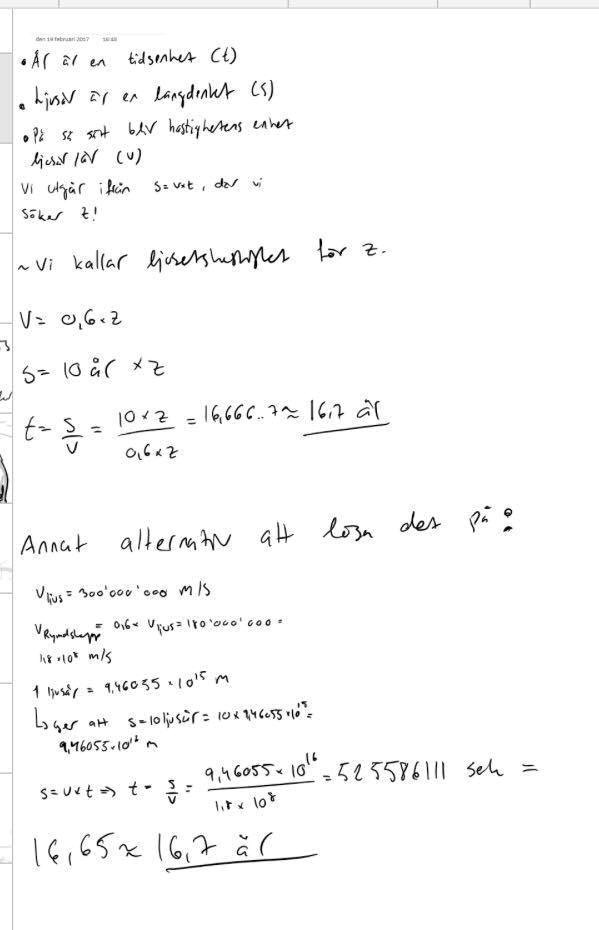 den 19 februari 2017 16:48
• År är en tidsenhet (t)
• Ljusår är en längdenhet (s)
• På så sätt blir hastighetens enhet
ljusår/år (v)
Vi utgår ifrån s=v×t, där vi
söker t!
~ Vi kallar ljusetshastighet för z.
V= 0,6×z
S= 10 år × z
t= s/v = 10×z / 0,6×z = 16,666..7 ≈ 16,7 år
Annat alternativ att lösa det på:
V ljus = 300'000'000 m/s
V Rymdskepp = 0,6× V ljus = 180'000'000 =
1,8×10⁸ m/s
1 ljusår = 9,46055×10¹⁵ m
↳ ger att s=10 ljusår = 10×9,46055×10¹⁵=
9,46055×10¹⁶ m
s=v×t => t= s/v = 9,46055×10¹⁶ / 1,8×10⁸ = 525586111 sek =
16,65 ≈ 16,7 år